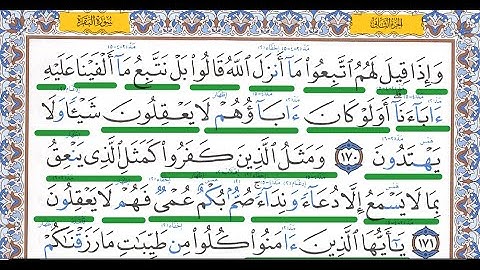 الجزء الثاني سورة البقرة
وَإِذَا قِيلَ لَهُمُ اتَّبِعُوا مَا أَنزَلَ اللَّهُ قَالُوا بَلْ نَتَّبِعُ مَا أَلْفَيْنَا عَلَيْهِ
ءَابَآءَنَآ أَوَلَوْ كَانَ ءَابَآؤُهُمْ لَا يَعْقِلُونَ شَيْـًٔا وَلَا
يَهْتَدُونَ ١٧٠ وَمَثَلُ الَّذِينَ كَفَرُوا كَمَثَلِ الَّذِي يَنْعِقُ
بِمَا لَا يَسْمَعُ إِلَّا دُعَآءً وَنِدَآءً صُمٌّ بُكْمٌ عُمْيٌ فَهُمْ لَا يَعْقِلُونَ
١٧١ يَـٰٓأَيُّهَا الَّذِينَ ءَامَنُوا كُلُوا مِن طَيِّبَـٰتِ مَا رَزَقْنَـٰكُمْ